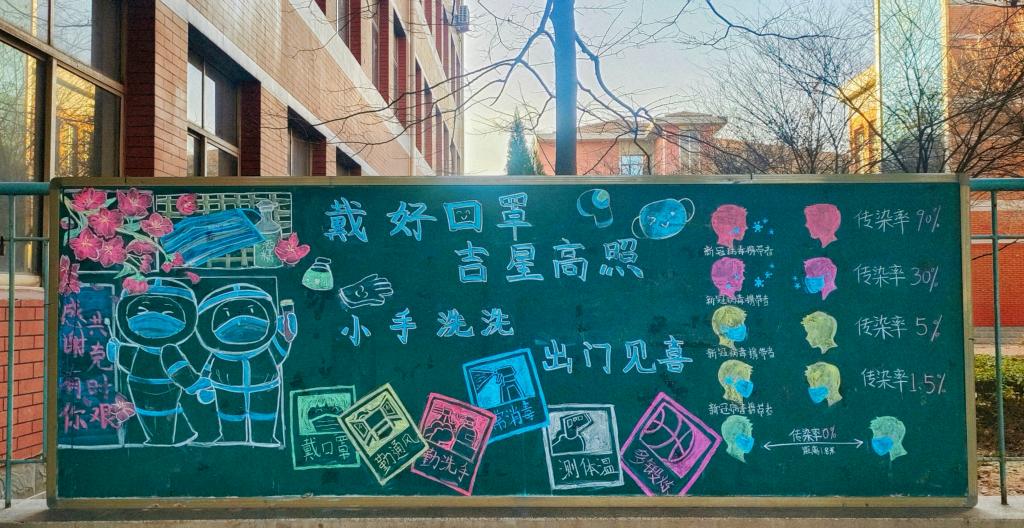 戴好口罩
吉星高照
小手洗洗
出门见喜
感谢有你
共克时艰
戴口罩
勤通风
勤洗手
常消毒
测体温
多锻炼
新冠病毒携带者
传染率90%
新冠病毒携带者
传染率30%
新冠病毒携带者
传染率5%
新冠病毒携带者
传染率1.5%
传染率0%
距离1.8米